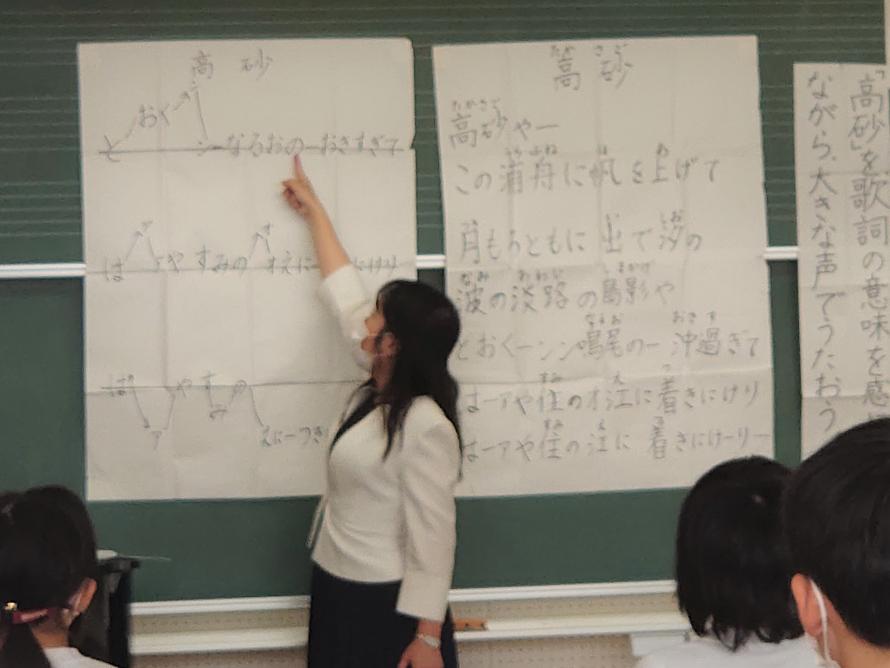 高砂
とおくンンーなるおのーおきすぎて
はァァや すみのオオえにーにけり
はァや すみのえにーつき
高砂
たかさご
高砂やー
たかさご
この浦舟に帆を上げて
うらふね ほ あ
月もろともに 出で汐の
しお
波の淡路の島影や
なみ あわじ しまかげ
とおくーンン鳴尾のー 沖過ぎて
なるお おきす
はーァや住のオ江に着きにけり
すみ え つ
はーァや住の江に 着きにけーりー
すみ え つ
「高砂」を歌詞の意味を感じ
ながら、大きな声でうたおう